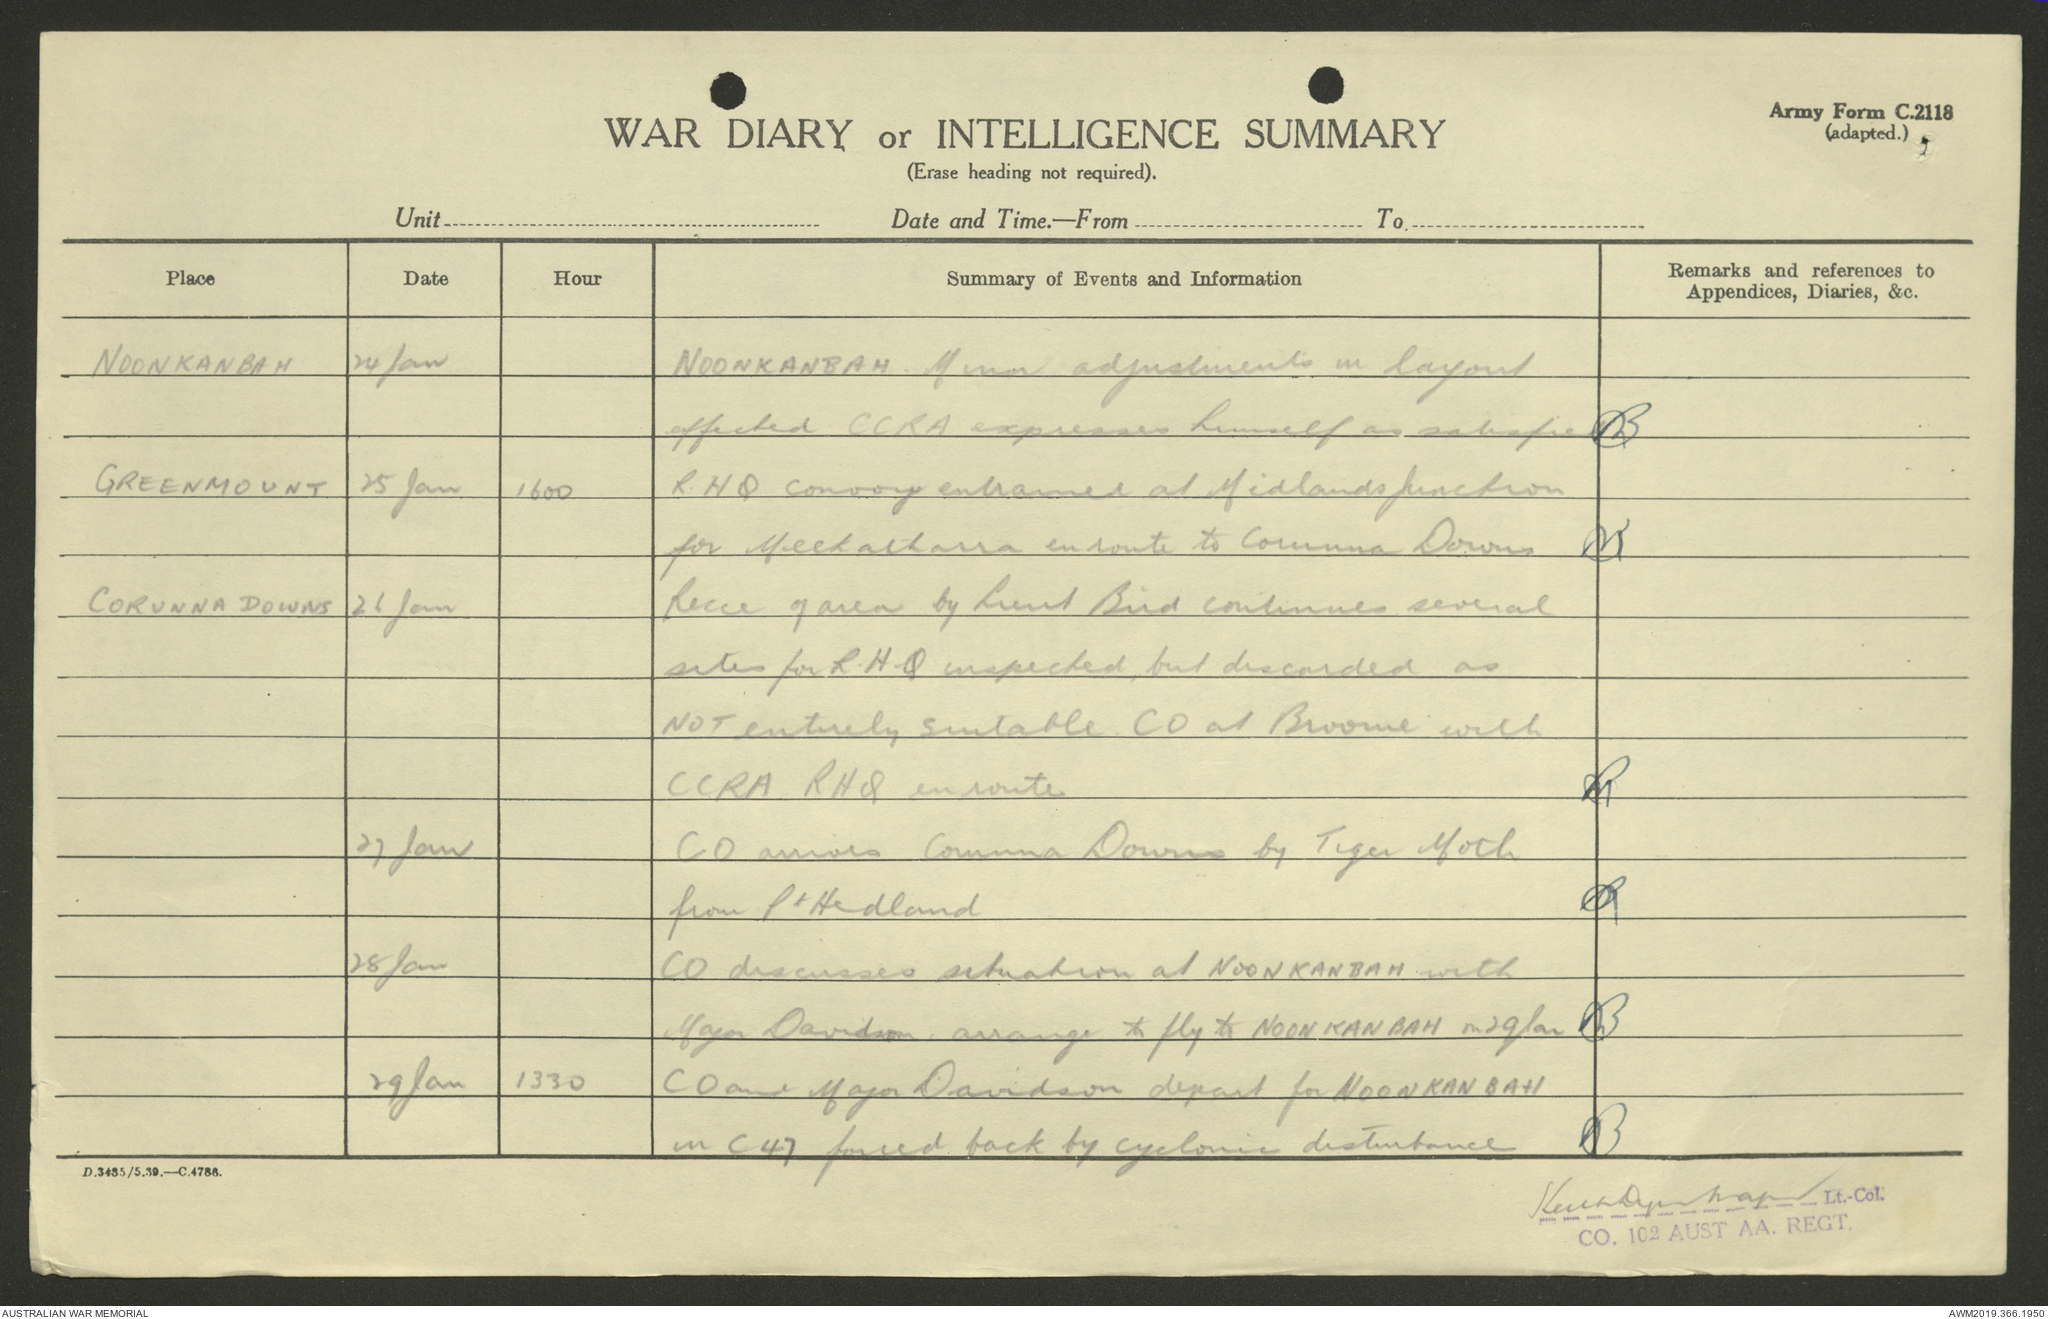 Army Form C.2118
(adapted.)
WAR DIARY or INTELLIGENCE SUMMARY
(Erase heading not required).
Unit
Date and Time.—From
To
Place
Date
Hour
Summary of Events and Information
Remarks and references to
Appendices, Diaries, &c.
NOONKANBAH 24 Jan NOONKANBAH. Minor adjustments in layout
effected CCRA expresses himself as satisfied
GREENMOUNT 25 Jan 1600 R.H.Q convoy entrained at Midlands Junction
for Meekatharra enroute to Corunna Downs
CORUNNA DOWNS 26 Jan Recce of area by Lieut Bird continues several
sites for R.H.Q inspected, but discarded as
NOT entirely suitable. CO at Broome with
CCRA RHQ enroute
27 Jan CO arrives Corunna Downs by Tiger Moth
from Pt Hedland
28 Jan CO discusses situation at NOONKANBAH with
Major Davidson. arrange to fly to NOONKANBAH on 29 Jan
29 Jan 1330 CO and Major Davidson depart for NOONKANBAH
in C47 forced back by cyclonic disturbance
D.3485/5.39.—C.4786.
Lt.-Col.
CO. 102 AUST AA. REGT.
AUSTRALIAN WAR MEMORIAL
AWM2019.366.1950